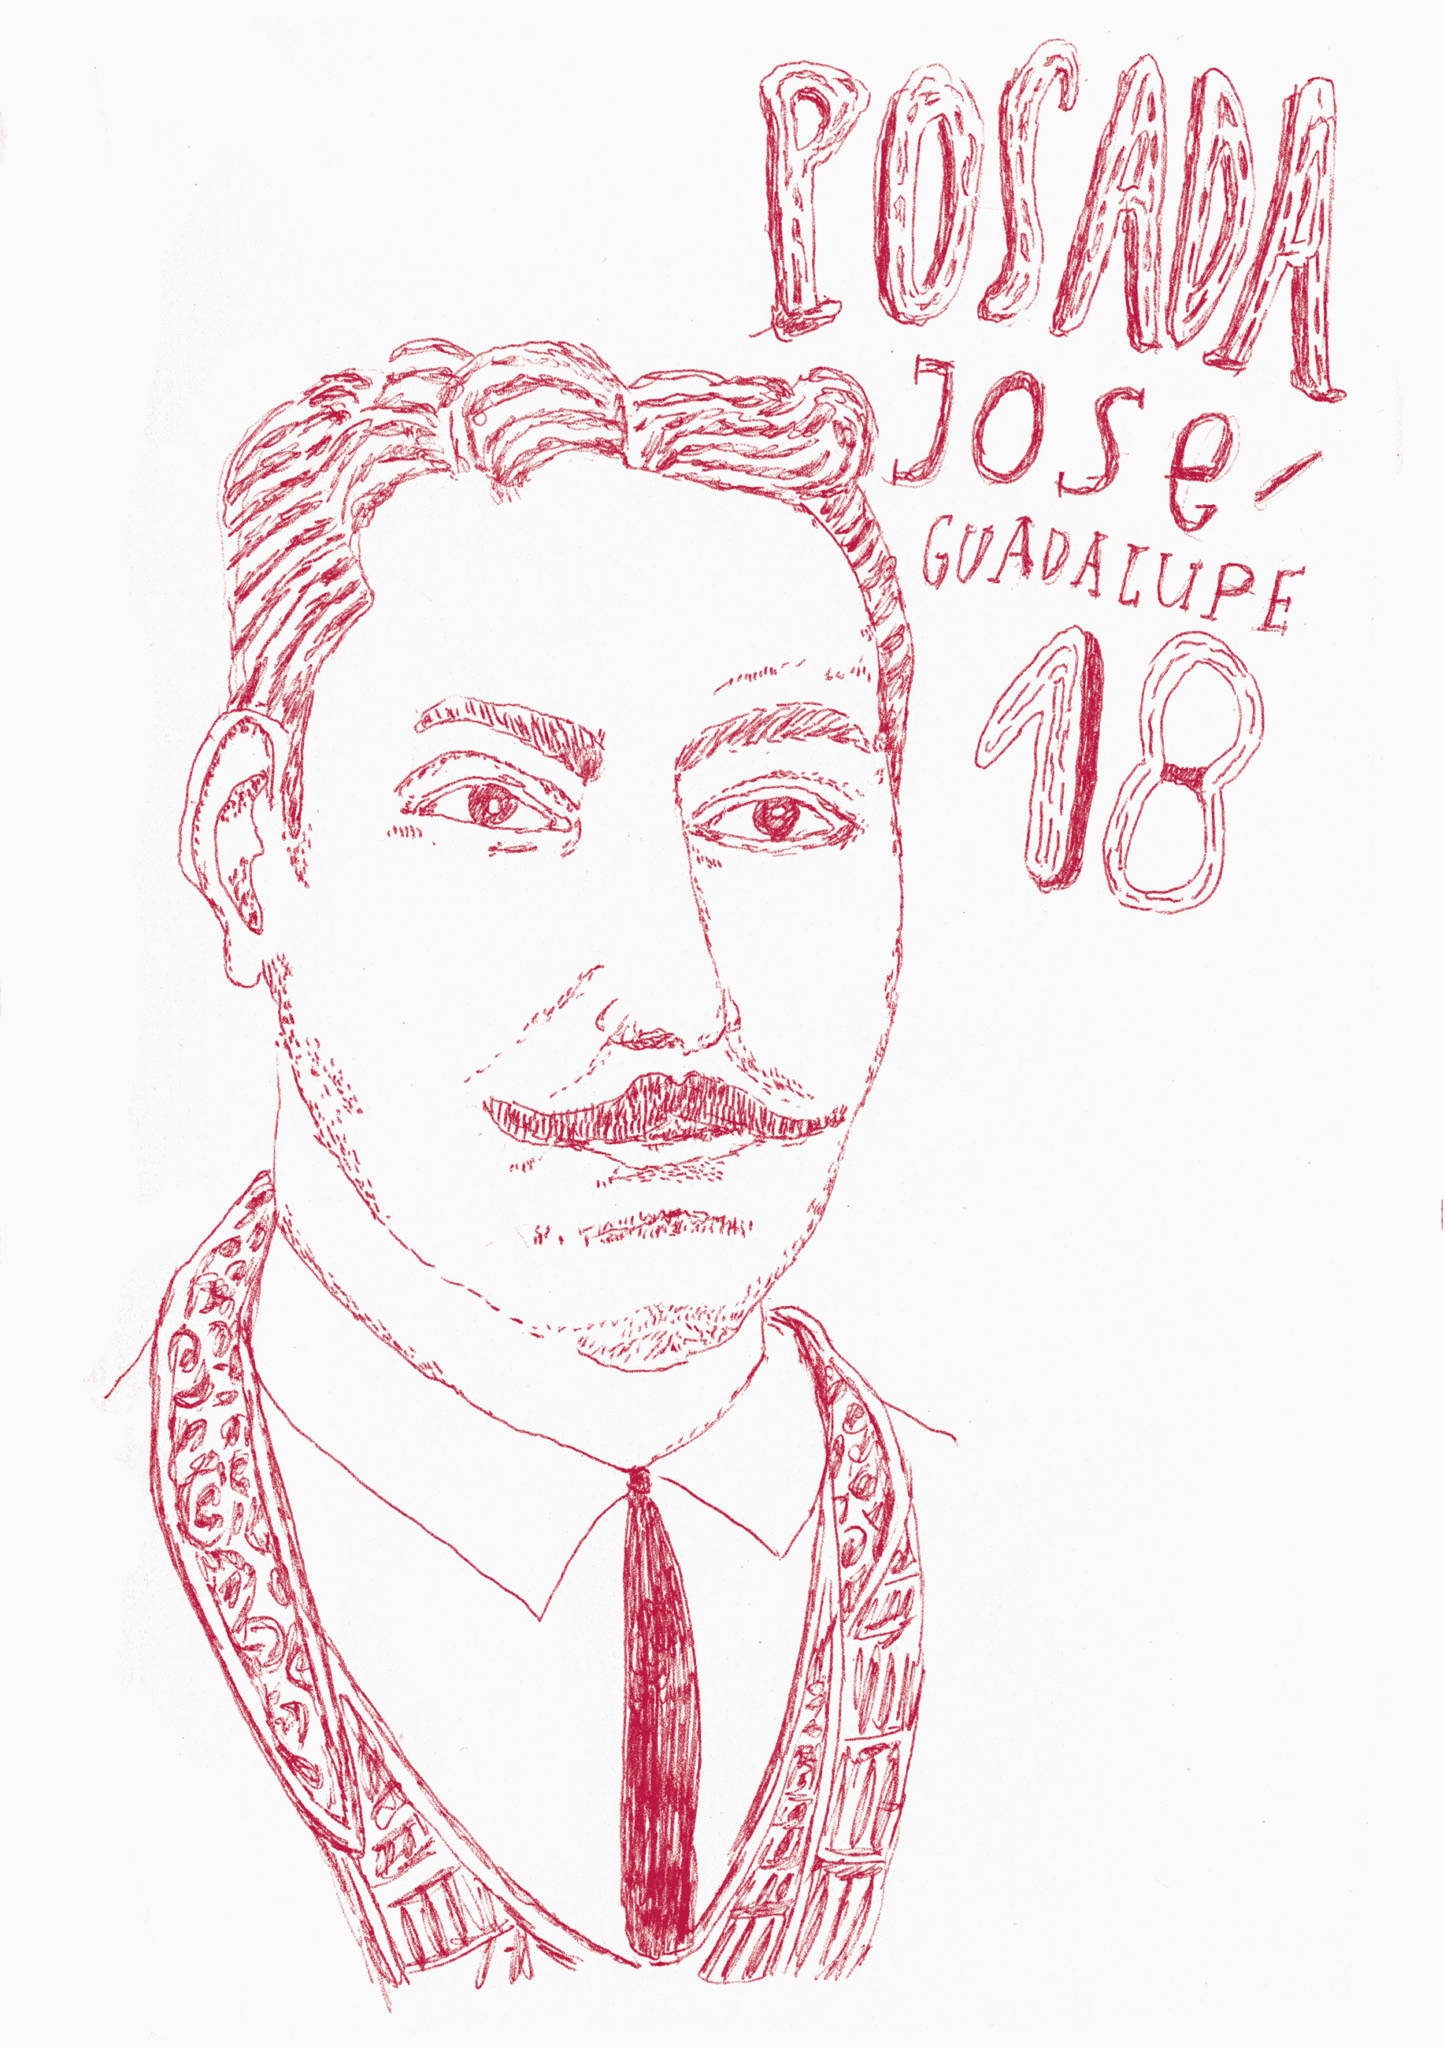 POSADA
JOSé
GUADALUPE
18